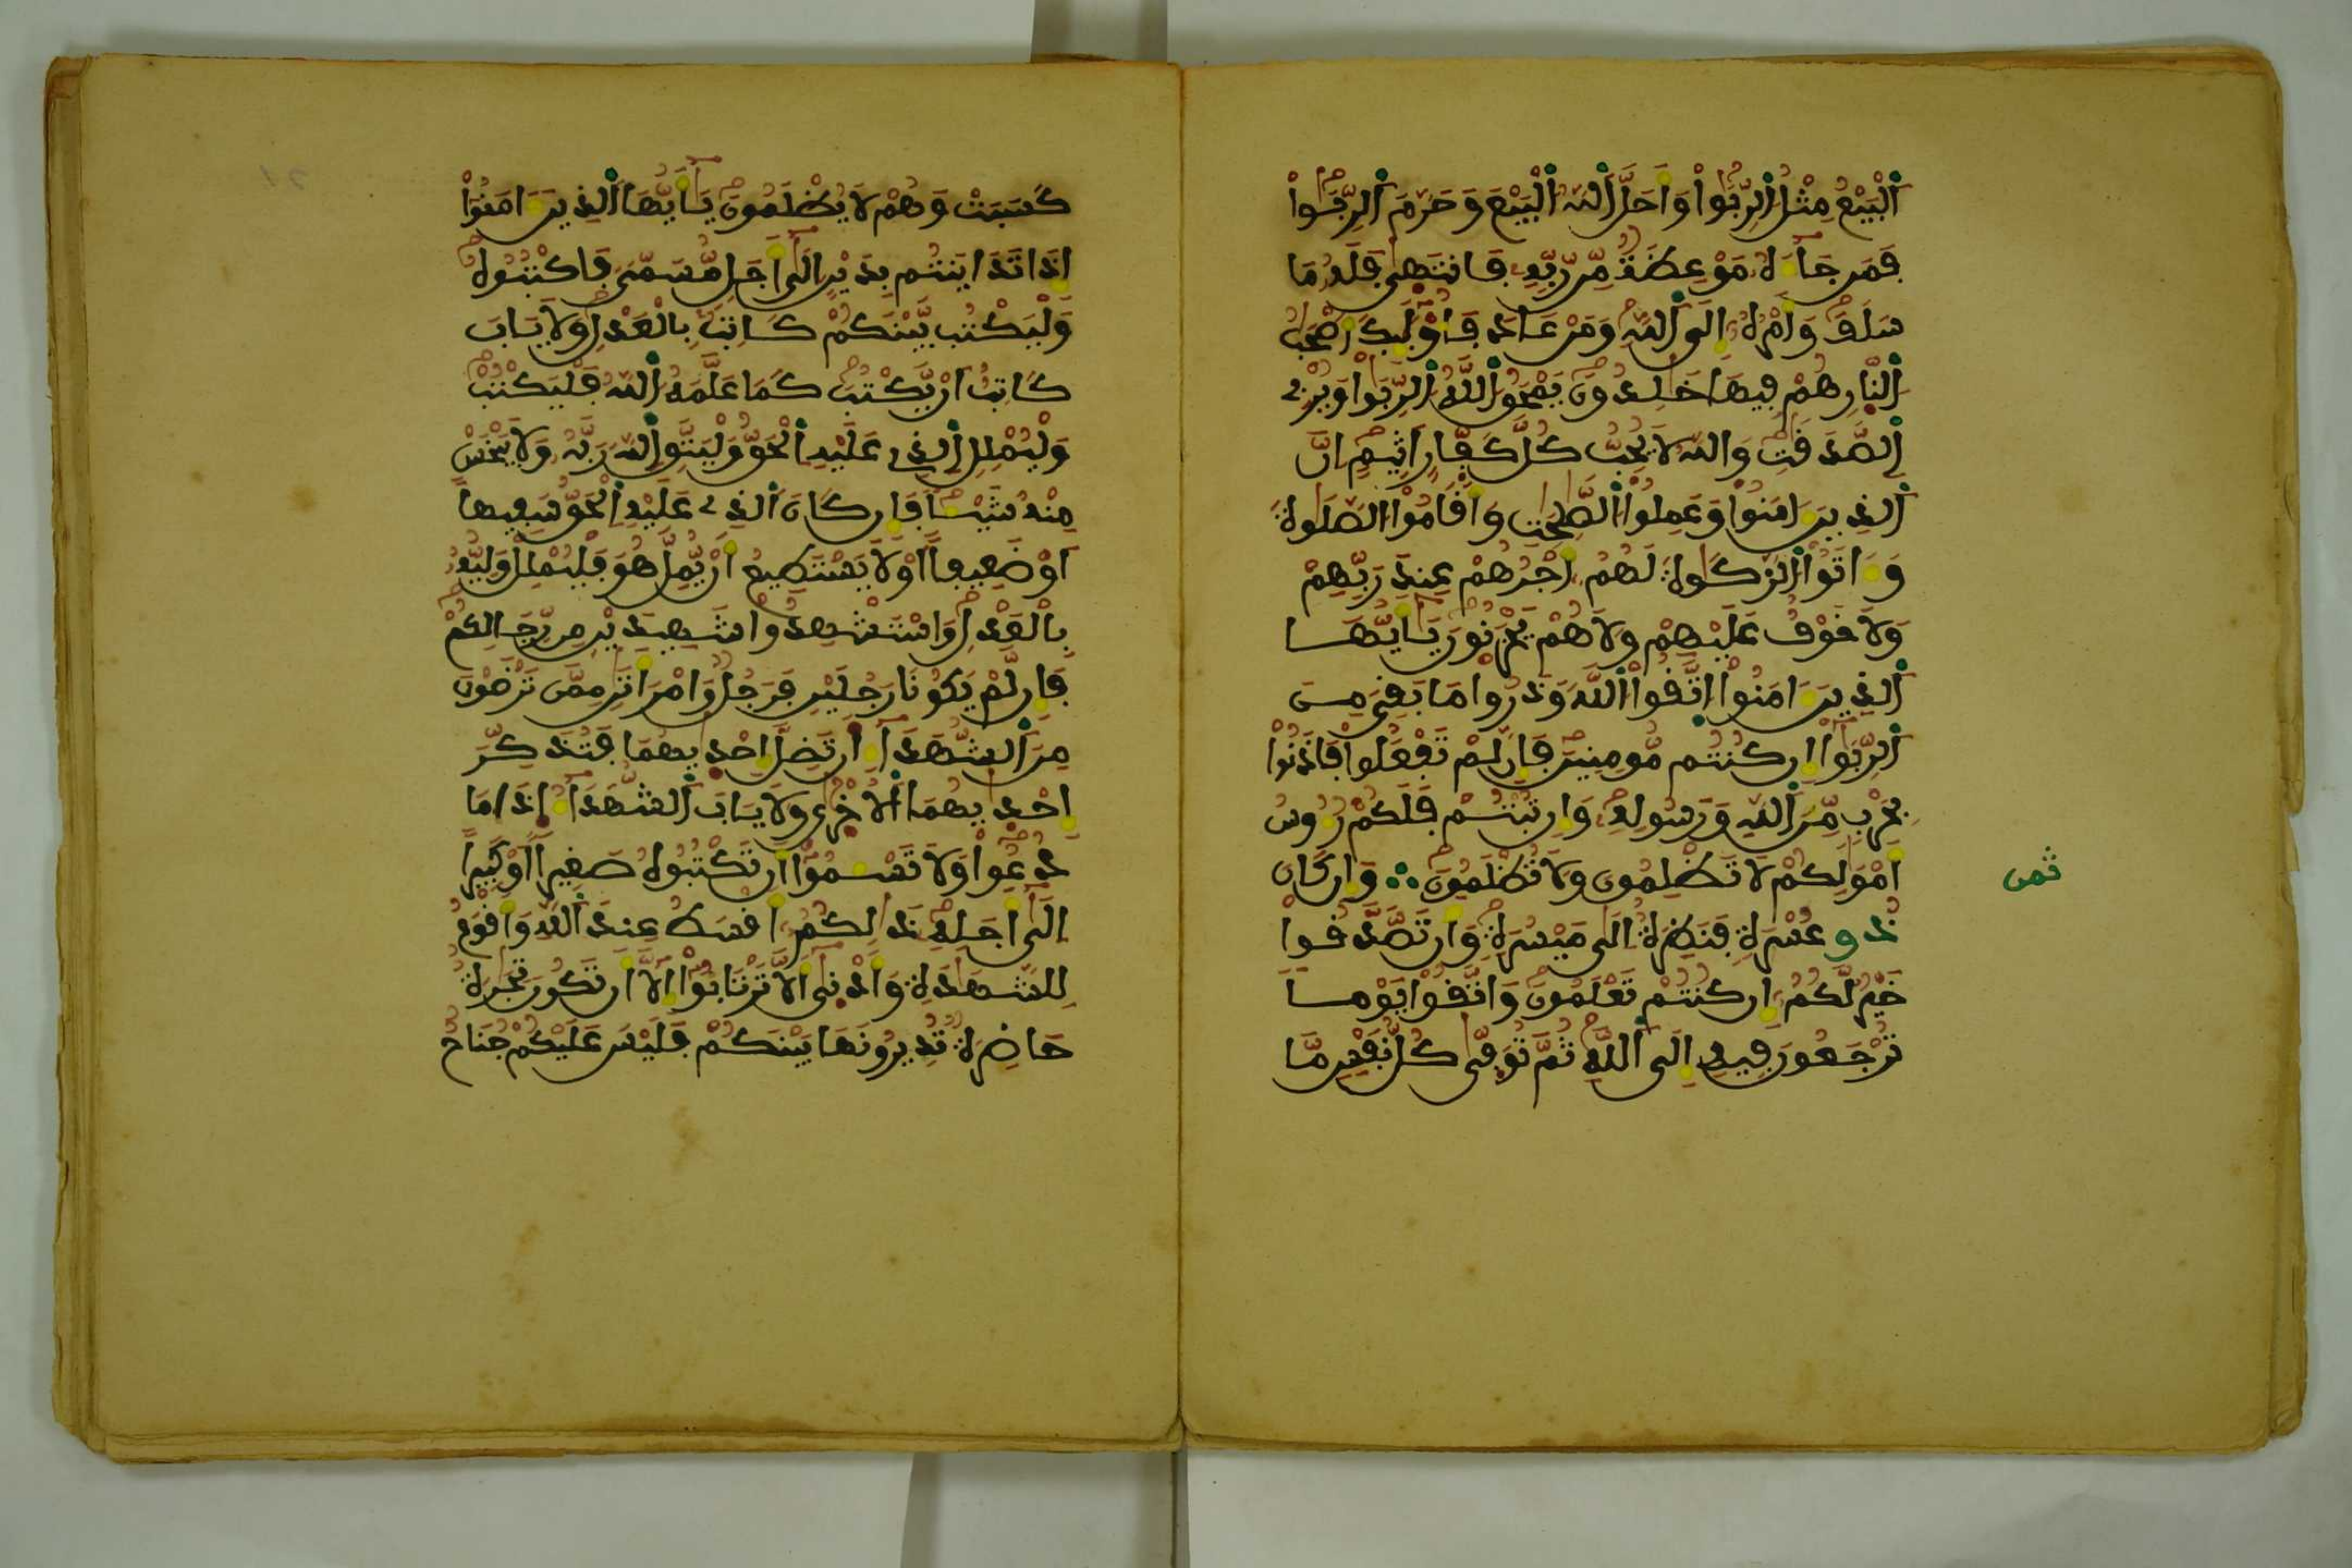 اَ۬لْبَيْعُ مِثْلُ اُ۬لرِّبَوٰاْ وَأَحَلَّ اَ۬للَّهُ اُ۬لْبَيْعَ وَحَرَّمَ اَ۬لرِّبَوٰاْ
فَمَن جَآءَهُۥ مَوْعِظَةٌ مِّن رَّبِّهِۦ فَانتَهٰى فَلَهُۥ مَا
سَلَفَ وَأَمْرُهُۥ إِلَى اَ۬للَّهِ وَمَنْ عَادَ فَأُوْلَٰٓئِكَ أَصْحَٰبُ
اُ۬لنّ۪ارِ هُمْ فِيهَا خَٰلِدُونَ يَمْحَقُ اُ۬للَّهُ اُ۬لرِّبَوٰاْ وَيُرْبِے
اِ۬لصَّدَقَٰتِ وَاللَّهُ لَا يُحِبُّ كُلَّ كَفَّارٍ أَثِيمٍ إِنَّ
اَ۬لذِينَ ءَامَنُواْ وَعَمِلُواْ اُ۬لصَّٰلِحَٰتِ وَأَقَامُواْ اُ۬لصَّلَوٰةَ
وَءَاتَوُاْ اُ۬لزَّكَوٰةَ لَهُمُۥٓ أَجْرُهُمْ عِندَ رَبِّهِمْ
وَلَا خَوْفٌ عَلَيْهِمْ وَلَا هُمْ يَحْزَنُونَ يَٰٓأَيُّهَا
اَ۬لذِينَ ءَامَنُواْ اُ۪تَّقُواْ اُ۬للَّهَ وَذَرُواْ مَا بَقِيَ مِنَ
اَ۬لرِّبَوٰٓاْ إِن كُنتُم مُّومِنِينَ فَإِن لَّمْ تَفْعَلُواْ فَاذَنُواْ
بِحَرْبٍ مِّنَ اَ۬للَّهِ وَرَسُولِهِۦ وَإِن تُبْتُمْ فَلَكُمْ رُءُوسُ
أَمْوَٰلِكُمْ لَا تَظْلِمُونَ وَلَا تُظْلَمُونَ ۝ وَإِن كَانَ
ثمن
ذُو عُسْرَةٍ فَنَظِرَةٌ إِلَىٰ مَيْسُرَةٍ وَأَن تَصَّدَّقُواْ
خَيْرٌ لَّكُمُۥٓ إِن كُنتُمْ تَعْلَمُونَ وَاتَّقُواْ يَوْماً
تُرْجَعُونَ فِيهِ إِلَى اَ۬للَّهِ ثُمَّ تُوَفّٰى كُلُّ نَفْسٍ مَّا
كَسَبَتْ وَهُمْ لَا يُظْلَمُونَ يَٰٓأَيُّهَا اَ۬لذِينَ ءَامَنُوٓاْ
إِذَا تَدَايَنتُم بِدَيْنٍ إِلَىٰٓ أَجَلٍ مُّسَمّىً فَاكْتُبُوهُ
وَلْيَكْتُب بَّيْنَكُمْ كَاتِبٌ بِالْعَدْلِ وَلَا يَابَ
كَاتِبٌ أَنْ يَّكْتُبَ كَمَا عَلَّمَهُ اُ۬للَّهُ فَلْيَكْتُبْ
وَلْيُمْلِلِ اِ۬لذِے عَلَيْهِ اِ۬لْحَقُّ وَلْيَتَّقِ اِ۬للَّهَ رَبَّهُۥ وَلَا يَبْخَسْ
مِنْهُ شَيْـٔاً فَإِن كَانَ اَ۬لذِے عَلَيْهِ اِ۬لْحَقُّ سَفِيهاً
أَوْ ضَعِيفاً أَوْ لَا يَسْتَطِيعُ أَنْ يُّمِلَّ هُوَ فَلْيُمْلِلْ وَلِيُّهُۥ
بِالْعَدْلِ وَاسْتَشْهِدُواْ شَهِيدَيْنِ مِن رِّجَالِكُمْ
فَإِن لَّمْ يَكُونَا رَجُلَيْنِ فَرَجُلٌ وَامْرَأَتَٰنِ مِمَّن تَرْضَوْنَ
مِنَ اَ۬لشُّهَدَآءِ ا۪ن تَضِلَّ إِحْد۪يٰهُمَا فَتُذَكِّرَ
إِحْد۪يٰهُمَا اَ۬لُاخْر۪يٰ وَلَا يَابَ اَ۬لشُّهَدَآءُ اِ۪ذَا مَا
دُعُواْ وَلَا تَسْـَٔمُوٓاْ أَن تَكْتُبُوهُ صَغِيراً أَوْ كَبِيراً
إِلَىٰٓ أَجَلِهِۦ ذَٰلِكُمُۥٓ أَقْسَطُ عِندَ اَ۬للَّهِ وَأَقْوَمُ
لِلشَّهَٰدَةِ وَأَدْن۪يٰٓ أَلَّا تَرْتَابُوٓاْ إِلَّآ أَن تَكُونَ تِجَٰرَةٌ
حَاضِرَةٌ تُدِيرُونَهَا بَيْنَكُمْ فَلَيْسَ عَلَيْكُمْ جُنَاحٌ